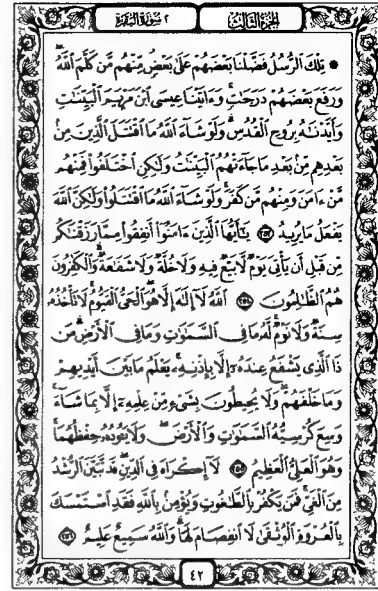 الجزء الثالث
٢ سورة البقرة
تِلْكَ ٱلرُّسُلُ فَضَّلْنَا بَعْضَهُمْ عَلَىٰ بَعْضٍ مِّنْهُم مَّن كَلَّمَ ٱللَّهُ
وَرَفَعَ بَعْضَهُمْ دَرَجَٰتٍ وَءَاتَيْنَا عِيسَى ٱبْنَ مَرْيَمَ ٱلْبَيِّنَٰتِ
وَأَيَّدْنَٰهُ بِرُوحِ ٱلْقُدُسِ وَلَوْ شَآءَ ٱللَّهُ مَا ٱقْتَتَلَ ٱلَّذِينَ مِنۢ
بَعْدِهِم مِّنۢ بَعْدِ مَا جَآءَتْهُمُ ٱلْبَيِّنَٰتُ وَلَٰكِنِ ٱخْتَلَفُوا۟ فَمِنْهُم
مَّنْ ءَامَنَ وَمِنْهُم مَّن كَفَرَ وَلَوْ شَآءَ ٱللَّهُ مَا ٱقْتَتَلُوا۟ وَلَٰكِنَّ ٱللَّهَ
يَفْعَلُ مَا يُرِيدُ ٢٥٣ يَٰٓأَيُّهَا ٱلَّذِينَ ءَامَنُوٓا۟ أَنفِقُوا۟ مِمَّا رَزَقْنَٰكُم
مِّن قَبْلِ أَن يَأْتِىَ يَوْمٌ لَّا بَيْعٌ فِيهِ وَلَا خُلَّةٌ وَلَا شَفَٰعَةٌ وَٱلْكَٰفِرُونَ
هُمُ ٱلظَّٰلِمُونَ ٢٥٤ ٱللَّهُ لَآ إِلَٰهَ إِلَّا هُوَ ٱلْحَىُّ ٱلْقَيُّومُ لَا تَأْخُذُهُۥ
سِنَةٌ وَلَا نَوْمٌ لَّهُۥ مَا فِى ٱلسَّمَٰوَٰتِ وَمَا فِى ٱلْأَرْضِ مَن
ذَا ٱلَّذِى يَشْفَعُ عِندَهُۥٓ إِلَّا بِإِذْنِهِۦ يَعْلَمُ مَا بَيْنَ أَيْدِيهِمْ
وَمَا خَلْفَهُمْ وَلَا يُحِيطُونَ بِشَىْءٍ مِّنْ عِلْمِهِۦٓ إِلَّا بِمَا شَآءَ
وَسِعَ كُرْسِيُّهُ ٱلسَّمَٰوَٰتِ وَٱلْأَرْضَ وَلَا يَـُٔودُهُۥ حِفْظُهُمَا
وَهُوَ ٱلْعَلِىُّ ٱلْعَظِيمُ ٢٥٥ لَآ إِكْرَاهَ فِى ٱلدِّينِ قَد تَّبَيَّنَ ٱلرُّشْدُ
مِنَ ٱلْغَىِّ فَمَن يَكْفُرْ بِٱلطَّٰغُوتِ وَيُؤْمِنۢ بِٱللَّهِ فَقَدِ ٱسْتَمْسَكَ
بِٱلْعُرْوَةِ ٱلْوُثْقَىٰ لَا ٱنفِصَامَ لَهَا وَٱللَّهُ سَمِيعٌ عَلِيمٌ ٢٥٦
٤٢